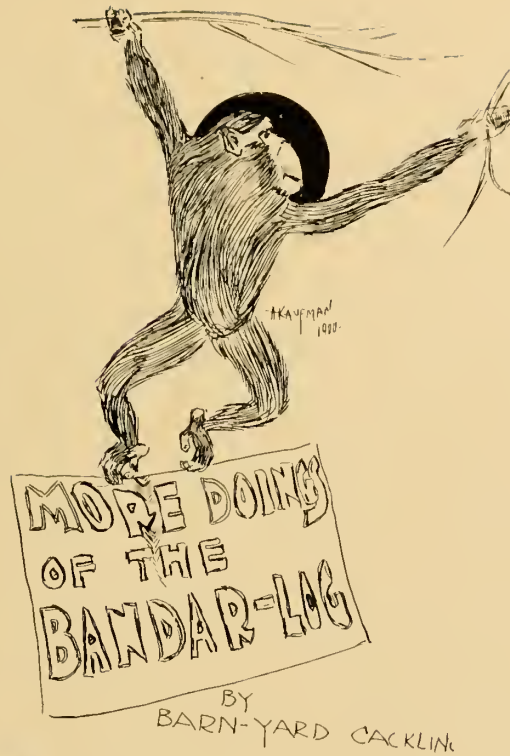 A KAUFMAN
1900.
MORE DOINGS
OF THE
BANDAR-LOG
BY
BARN-YARD CACKLING